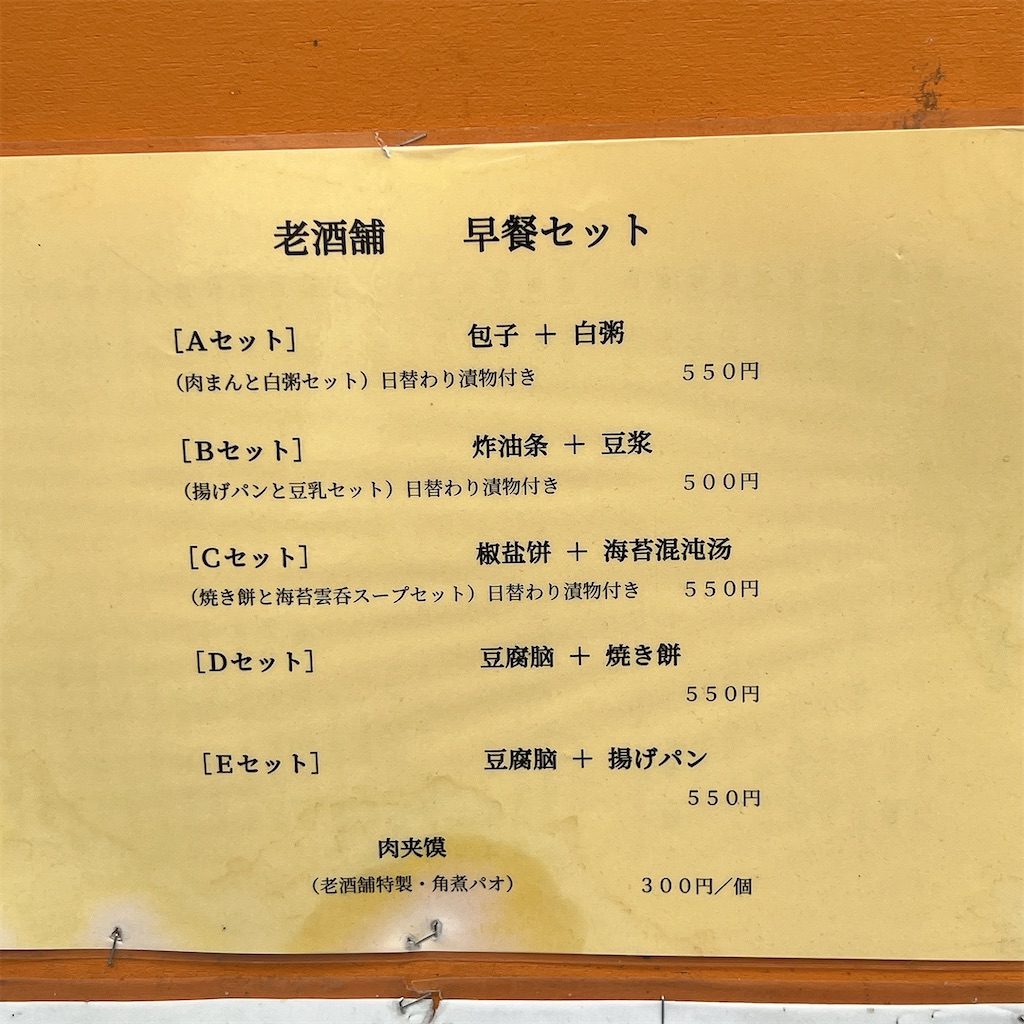 老酒舗　早餐セット
［Aセット］　包子 ＋ 白粥
（肉まんと白粥セット）日替わり漬物付き　５５０円
［Bセット］　炸油条 ＋ 豆浆
（揚げパンと豆乳セット）日替わり漬物付き　５００円
［Cセット］　椒盐饼 ＋ 海苔混沌汤
（焼き餅と海苔雲呑スープセット）日替わり漬物付き　５５０円
［Dセット］　豆腐脑 ＋ 焼き餅
５５０円
［Eセット］　豆腐脑 ＋ 揚げパン
５５０円
肉夹馍
（老酒舗特製・角煮パオ）　３００円／個